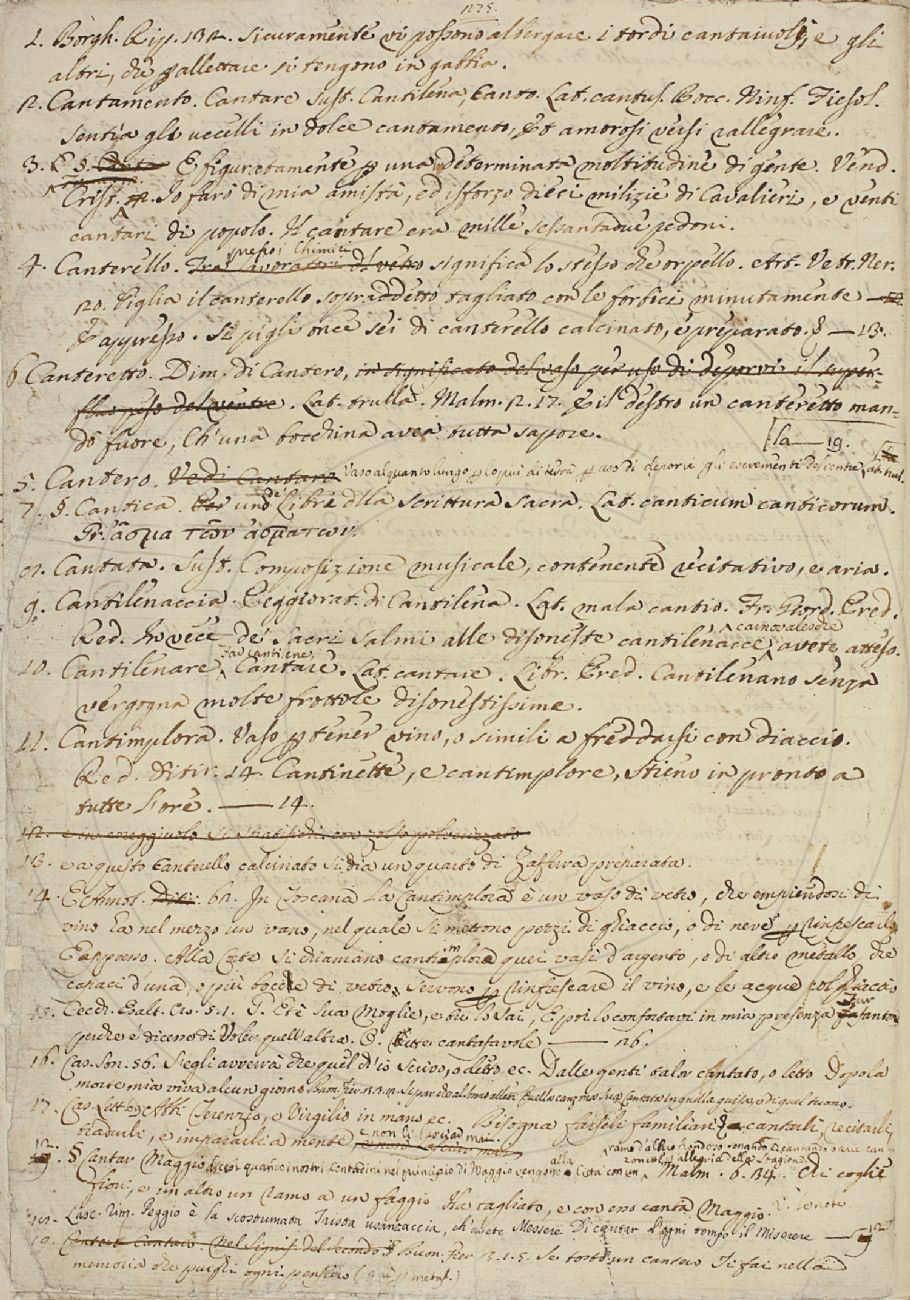 1275.
1. Borgh. Rip. 132. sicuramente vi possono albergare i tordi cantaiuoli, e gli
altri, che p allettare si tengono in gabbia.
2. Cantamento. Cantare sust. Cantilena, Canto. Lat. cantus. Bocc. Ninf. Fiesol.
Sentia gli uccelli in dolce cantamento, Et amorosi versi rallegrare.
3. §. E figuratamente p una determinata moltitudine di gente. Vend.
Crist. Io farò di mia amistà, ed isforzo dieci milizie di Cavalieri, e venti
cantari di popolo. Il cantare era mille sessantadue pedoni.
presso i Chimici
4. Canterello. Tra' lavoratori di vetro significa lo stesso che orpello. Art. Vetr. Ner.
20. Piglia il canterello sopraddetto tagliato con le forbici minutamente —
E appresso. Si pigli once sei di canterello calcinato, e preparato. — 13.
6. Canteretto. Dim. di Cantero, in significato del vaso per uso di deporvi il super-
fluo peso del ventre. Lat. trulla. Malm. 2. 17. E il destro un canteretto man-
dò fuore, Ch'una bocchina avea tutta sapore.
la — 19.
5. Cantero. Vedi Cantaro Vaso alquanto lungo p lo più di terra p uso di deporvi gli escrementi del ventre Lat.
7. §. Cantica. uno de' Libri della Scrittura Sacra. Lat. canticum canticorum.
Gr. ᾆσμα τῶν ᾀσμάτων.
8. Cantata. Sust. Composizione musicale, contenente recitativo, e aria.
9. Cantilenaccia. Peggiorat. di Cantilena. Lat. mala cantio. Fr. Giord. Pred.
carnovalesche
Red. In vece de' Sacri Salmi alle disoneste cantilenacce avete atteso.
Far cantilene
10. Cantilenare. Cantare. Lat. cantare. Libr. Pred. Cantilenano senza
vergogna molte frottole disonestissime.
11. Cantimplora. Vaso p tener vino, o simili a freddarsi con diaccio.
Red. Ditir. 14. Cantinette, e cantimplore, Stieno in pronto a
tutte l'ore. — 14.
12. e in coreggiuolo si stratifichi con zolfo polverizzato
13. e a questo Canterello calcinato si dia un quarto di Zaffera preparata.
14. E Annot. Ditir. 62. In Toscana la Cantimplora è un vaso di vetro, che empiendosi di
vino ha nel mezzo un vano, nel quale si mettono pezzi di ghiaccio, o di neve p rinfrescarlo
E appresso. Alla Corte si chiamano cantimplore quei vasi d'argento, o di altro metallo, che
capaci d'una, o più bocce di vetro, servono p rinfrescare il vino, e le acque col ghiaccio
15. Cecch. Esalt. Cr. 5. 1. T. Ell'è sua Moglie, e tu lo sai, E poi lo confortavi in mia presenza
perch'è diceno di voler quell'altra. cantafavole — 26.
16. Cas. Son. 56. S'egli avverrà che quel ch'io scrivo, o detto ec. Dalle genti talor cantato, o letto Dopo la
morte mia viva alcun giorno
17. Cas. Lett. Terenzio, e Virgilio in mano ec. Bisogna farseli familiari cantarli, recitarli,
tradurli, e impararli a mente e non li lasciar mai
18. § Cantar Maggio dicesi quando i nostri contadini nel principio di Maggio vengono alla città con un
ramo d'albero frondoso sonando, e cantando
Malm. 6. 34. Chi coglie
fiori, e un altro un ramo a un faggio Ha tagliato, e con esso canta Maggio.
19. Lasc. Rim. Peggio è la scostumata trista usanzaccia, ch'avete Messere Di cantar d'ogni tempo il Miserere
19. Cantero Cantaro. Nel signif. del secondo § Buon. Fier. 2. 1. 5. Se tosto un cantaro Ti fai nella
memoria che purghi ogni pensiero